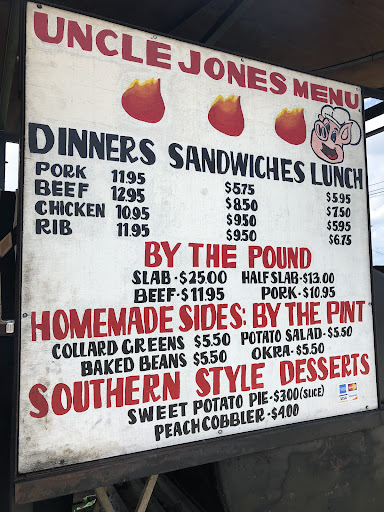 UNCLE JONES MENU
DINNERS SANDWICHES LUNCH
PORK 11.95 $5.75 $5.95
BEEF 12.95 $8.50 $7.50
CHICKEN 10.95 $9.50 $5.95
RIB 11.95 $9.50 $6.75
BY THE POUND
SLAB-$25.00 HALF SLAB-$13.00
BEEF-$11.95 PORK-$10.95
HOMEMADE SIDES: BY THE PINT
COLLARD GREENS $5.50 POTATO SALAD-$5.50
BAKED BEANS $5.50 OKRA-$5.50
SOUTHERN STYLE DESSERTS
SWEET POTATO PIE-$3.00 (SLICE)
PEACH COBBLER-$4.00